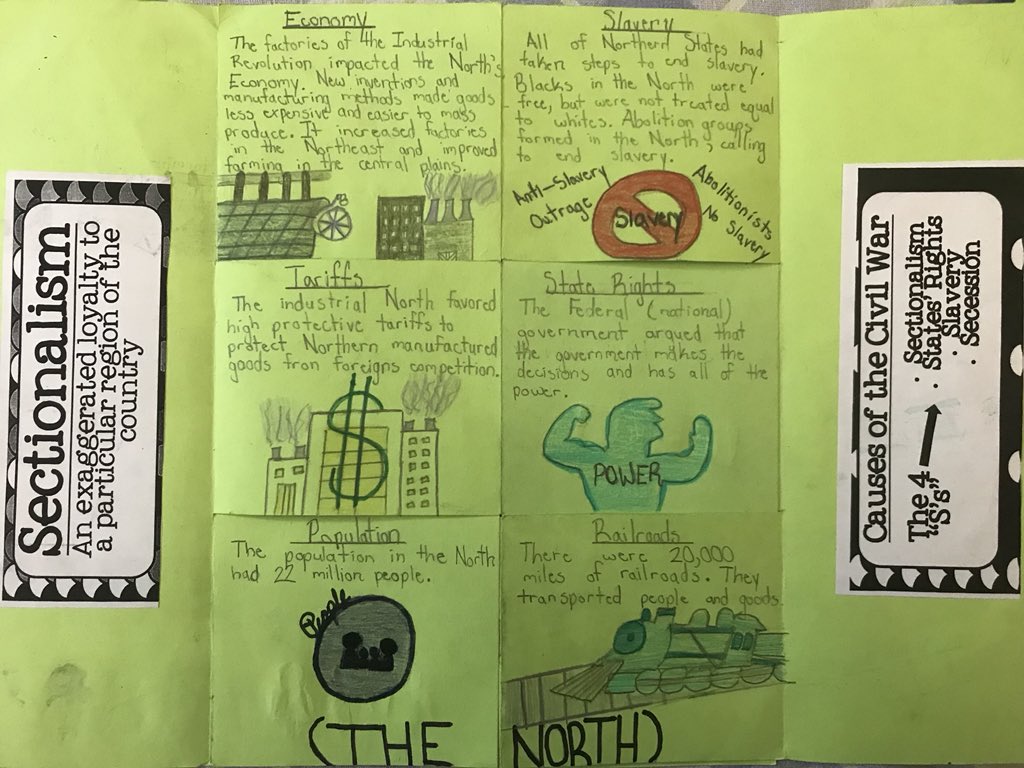 Sectionalism
An exaggerated loyalty to
a particular region of the
country
Economy
The factories of the Industrial
Revolution impacted the North's
Economy. New inventions and
manufacturing methods made goods
less expensive and easier to mass
produce. It increased factories
in the Northeast and improved
farming in the central plains.
Slavery
All of Northern States had
taken steps to end slavery.
Blacks in the North were
free, but were not treated equal
to whites. Abolition groups
formed in the North, calling
to end slavery.
Anti-Slavery
Outrage
Slavery
Abolitionists
No Slavery
Tariffs
The industrial North favored
high protective tariffs to
protect Northern manufactured
goods from foreigns competition.
$
State Rights
The Federal (national)
government argued that
the government makes the
decisions and has all of the
power.
POWER
Population
The population in the North
had 22 million people.
People
Railroads
There were 20,000
miles of railroads. They
transported people and goods.
(THE NORTH)
Causes of the Civil War
The 4
"S's"
· Sectionalism
· States' Rights
· Slavery
· Secession